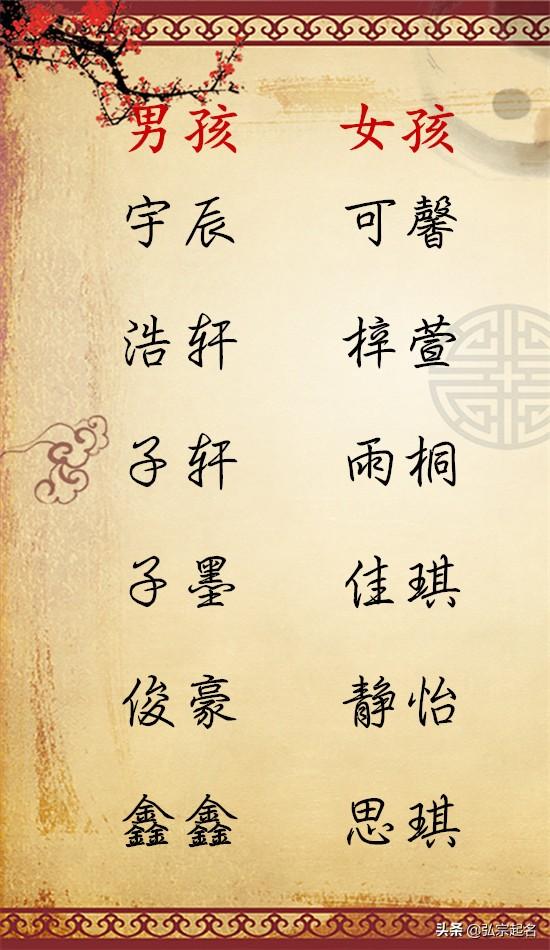 男孩 女孩
宇辰 可馨
浩轩 梓萱
子轩 雨桐
子墨 佳琪
俊豪 静怡
鑫鑫 思琪
头条 @弘宗起名